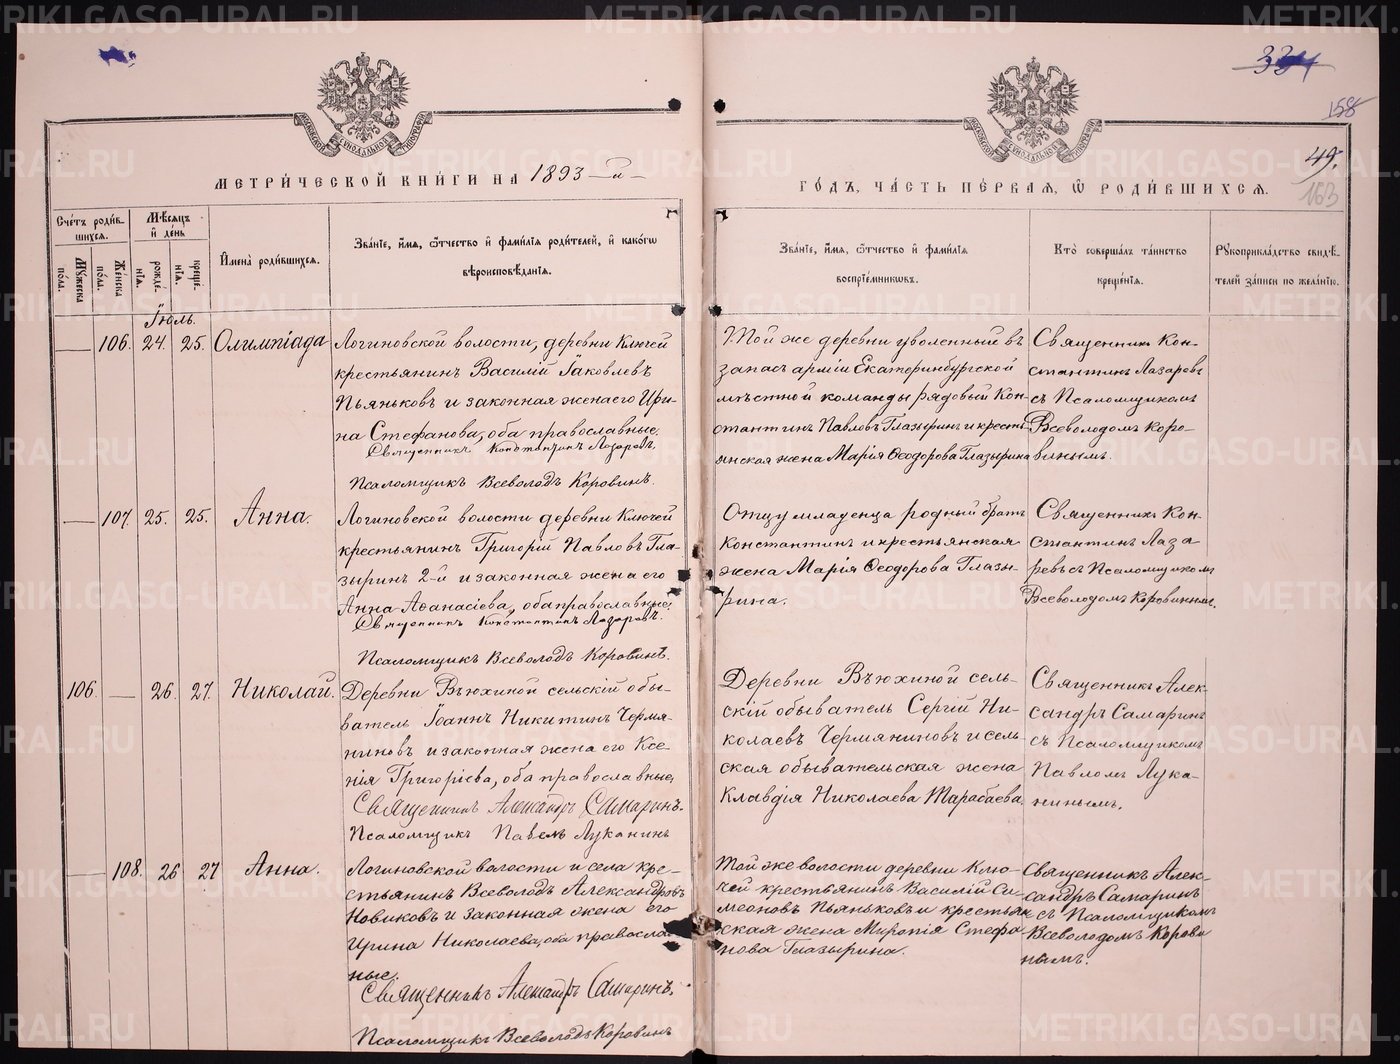 334
158
49.
163
МОСКОВСКОЙ СѴНОДАЛЬНОЙ ТИПОГРАФІИ
МОСКОВСКОЙ СѴНОДАЛЬНОЙ ТИПОГРАФІИ
МЕТРИ́ЧЕСКОЙ КНИ́ГИ НА 1893 —й—
ГО́ДЪ, ЧА́СТЬ ПЕ́РВАЯ, Ѿ РОДИ́ВШИХСЯ.
Сче́тъ роди́в-
шихся.
Му́жеска
по́ла.
Же́нска
по́ла.
Мѣ́сяцъ
и де́нь
рожде́-
нія.
креще́-
нія.
Имена̀ роди́вшихся.
Зва́ніе, и́мя, ѻ́тчество и фами́лія роди́телей, и како́гѡ
вѣроисповѣ́данія.
Зва́ніе, и́мя, ѻ́тчество и фами́лія
воспріе́мниковъ.
Кто̀ соверша́лъ та́инство
креще́нія.
Рукоприкла́дство свидѣ́-
телей за́писи по жела́нію.
Іюль.
— 106. 24. 25. Олимпіада
Логиновской волости, деревни Ключей
крестьянинъ Василій Іаковлевъ
Пьяньковъ и законная жена его Ири-
на Стефанова, оба православные.
Священникъ Константинъ Лазаревъ.
Псаломщикъ Всеволодъ Коровинъ.
Той же деревни уволенный въ
запасъ арміи Екатеринбургской
мѣстной команды рядовый Кон-
стантинъ Павловъ Глазыринъ и кресть-
янская жена Марія Ѳеодорова Глазырина
Священникъ Кон-
стантинъ Лазаревъ
съ Псаломщикомъ
Всеволодомъ Коро-
винымъ.
— 107. 25. 25. Анна.
Логиновской волости деревни Ключей
крестьянинъ Григорій Павловъ Гла-
зыринъ 2-й и законная жена его
Анна Аѳанасіева, оба православные.
Священникъ Константинъ Лазаревъ.
Псаломщикъ Всеволодъ Коровинъ.
Отцу младенца родный братъ
Константинъ и крестьянская
жена Марія Ѳеодорова Глазы-
рина.
Священникъ Кон-
стантинъ Лаза
ревъ съ Псаломщикомъ
Всеволодомъ Коровинымъ.
106. — 26. 27. Николай.
Деревни Вьюхиной сельскій обы-
ватель Іоаннъ Никитинъ Чермя-
ниновъ и законная жена его Ксе-
нія Григоріева, оба православные,
Священникъ Александръ Самаринъ.
Псаломщикъ Павелъ Луканинъ
Деревни Вьюхиной сель-
скій обыватель Сергій Ни-
колаевъ Чермяниновъ и сель-
ская обывательская жена
Клавдія Николаева Тарабаева.
Священникъ Алек-
сандръ Самаринъ
съ Псаломщикомъ
Павломъ Лука-
нинымъ.
— 108. 26 27 Анна.
Логиновской волости и села кре-
стьянинъ Всеволодъ Александровъ
Новиковъ и законная жена его
Ирина Николаева, оба православ-
ные.
Священникъ Александръ Самаринъ.
Псаломщикъ Всеволодъ Коровинъ
Той же волости деревни Клю-
чей крестьянинъ Василій Си-
меоновъ Пьяньковъ и крестьян
ская жена Миропія Стефа
нова Глазырина.
Священникъ Алек-
сандръ Самаринъ
съ Псаломщикомъ
Всеволодомъ Корови
нымъ.
METRIKI.GASO-URAL.RU